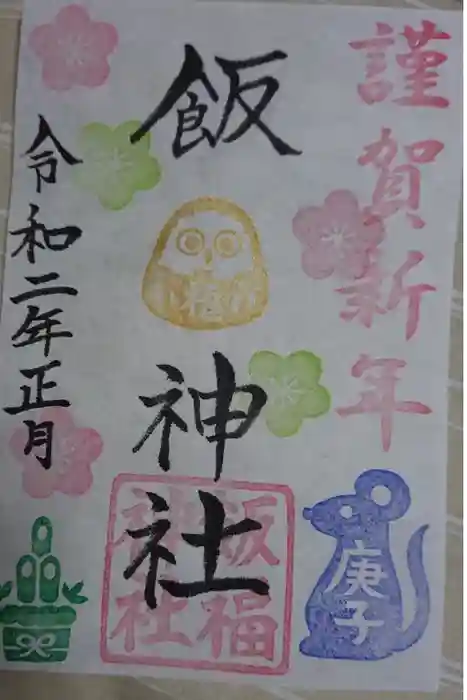 謹賀新年
飯神社
令和二年正月
飯福
神社
庚子